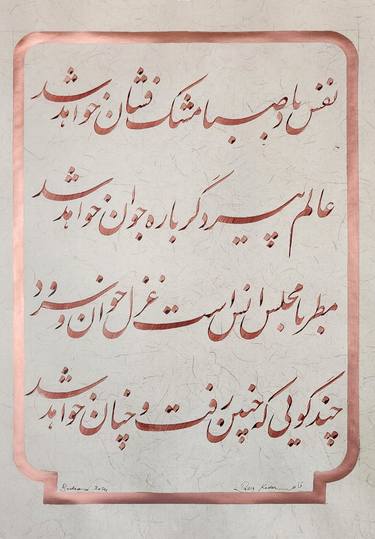 نفس باد صبا مشک فشان خواهد شد
عالم پیر دگر باره جوان خواهد شد
مطربا مجلس انس است غزل خوان و سرود
چند گویی که چنین رفت و چنان خواهد شد